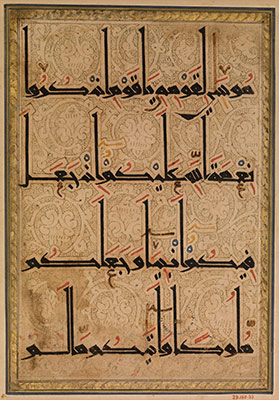 موسى لقومه يا قوم اذكروا
نعمة الله عليكم اذ جعل
فيكم انبيا وجعلكم
ملوكا واتىكم ما لم